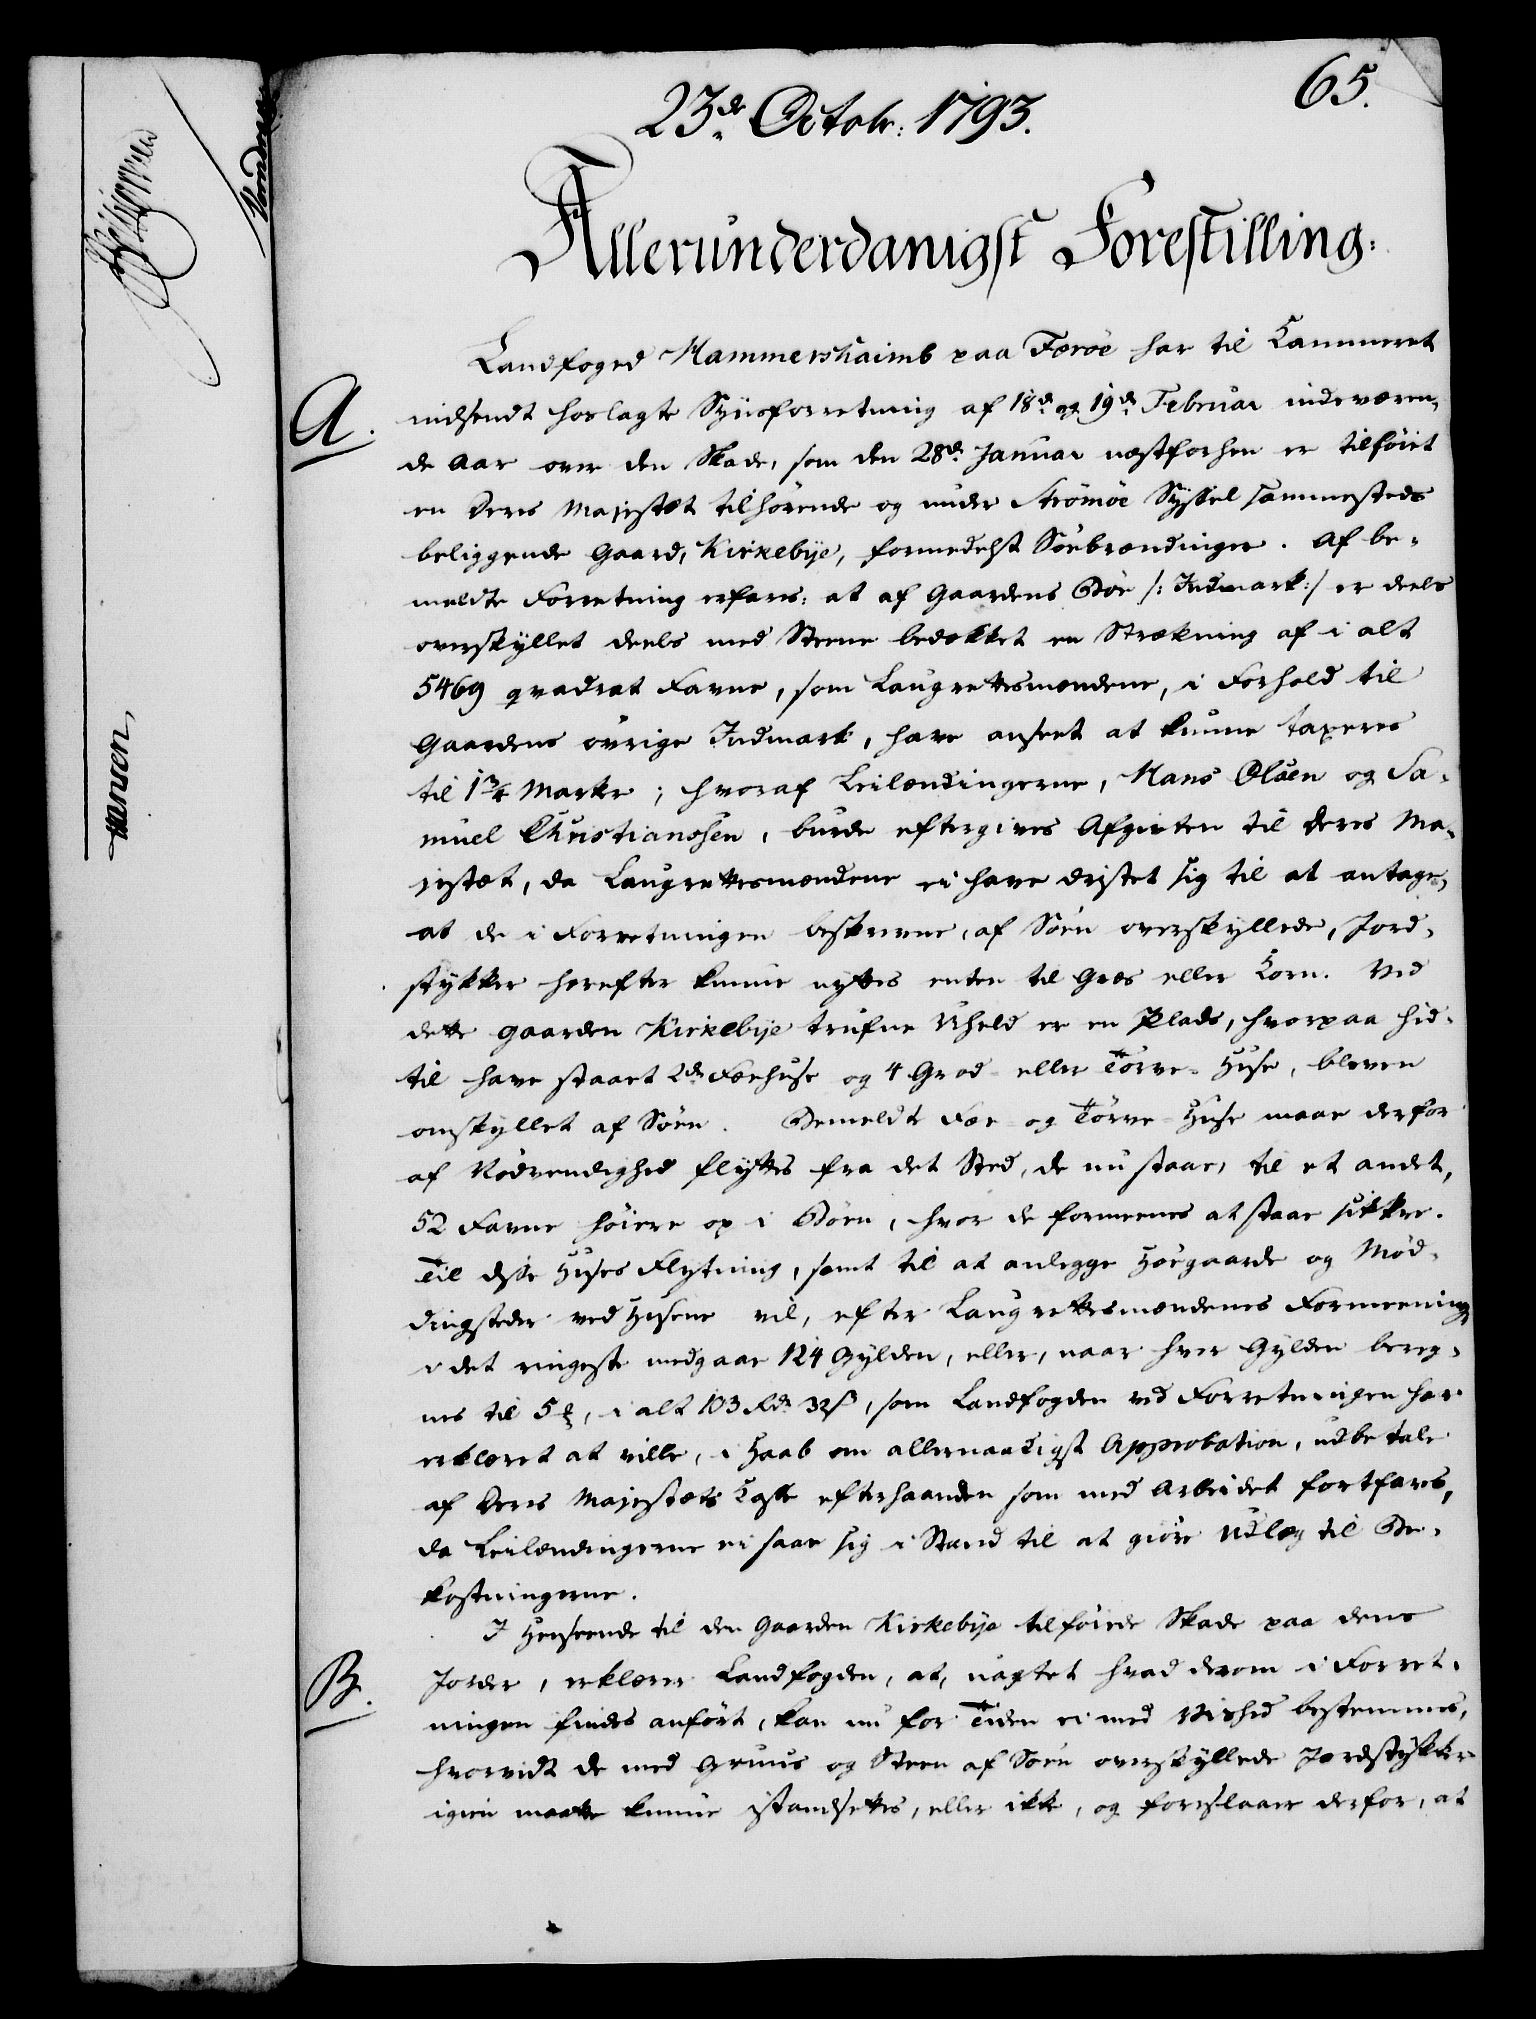 65.
23de Octobr: 1793.
Allerunderdanigst Forestilling:
Landfoged Hammershaimb paa Færöe har til Kammeret
A. indsendt hoslagte Syunsforretning af 18de og 19de Februar indeværen-
de Aar over den Skade, som den 28de Januar næstforhen er tilföiet
en Deres Majestæt tilhörende og under Strömöe Syssel sammesteds
beliggende Gaard, Kirkebÿe, formedelst Söebrændinger. Af be-
meldte Forretning erfares: at af Gaardens Böe /: Indmark :/ er deels
overskyllet deels med Steene bedækket en Strækning af i alt
5469 qvadrat Favne, som Laugrettesmændene, i Forhold til
Gaardens övrige Indmark, have anseet at kunne taxeres
til 1¾ Marker; hvoraf Leilændingerne, Hans Olsen og Sa-
muel Christianssen, burde eftergives Afgivten til Deres Ma-
jestæt, da Laugrettesmændene ei have dristet sig til at antage,
at de i Forretningen beskrevne, af Söen overskyllede, Jord-
stykker herefter kunne nyttes enten til Græs eller Korn. Ved
dette Gaarden Kirkebÿe trufne Uheld er en Plads, hvorpaa hid-
til have staaet 2de Fæehuse og 4 Grod- eller Törve-Huse, bleven
omskyllet af Söen. Bemeldte Fæe- og Törve-Huse maae derfor
af Nödvendighed flyttes fra det Sted, de nu staae, til et andet,
52 Favne höiere op i Böen, hvor de formeenes at staae sikkre.
Til disse Huses Flytning, samt til at anlegge Höegaarde og Möd-
dingsteder ved Husene vil, efter Laugrettesmændenes Formeening
i det ringeste medgaae 124 Gylden, eller, naar hver Gylden bereg-
nes til 5 ℔, i alt 103 Rdr 32 ß, som Landfogden ved Forretningen har
erklæret at ville, i Haab om allernaadigst Approbation, udbetale
af Deres Majestæts Casse efterhaanden som med Arbeidet fortfares,
da Leilændingerne ei saae sig i Stand til at giöre Udlæg til Be-
kostningerne.
I Henseende til den Gaarden Kirkebÿe tilföiede Skade paa dens
B. Jorder, erklærer Landfogden, at, uagtet hvad derom i Forret-
ningen findes anfört, kan nu for Tiden ei med Vished bestemmes,
hvorvidt de med Gruus og Steen af Söen overskyllede Jordstykker
igien maatte kunne istandsettes, eller ikke, og foreslaaer derfor, at
Hansen